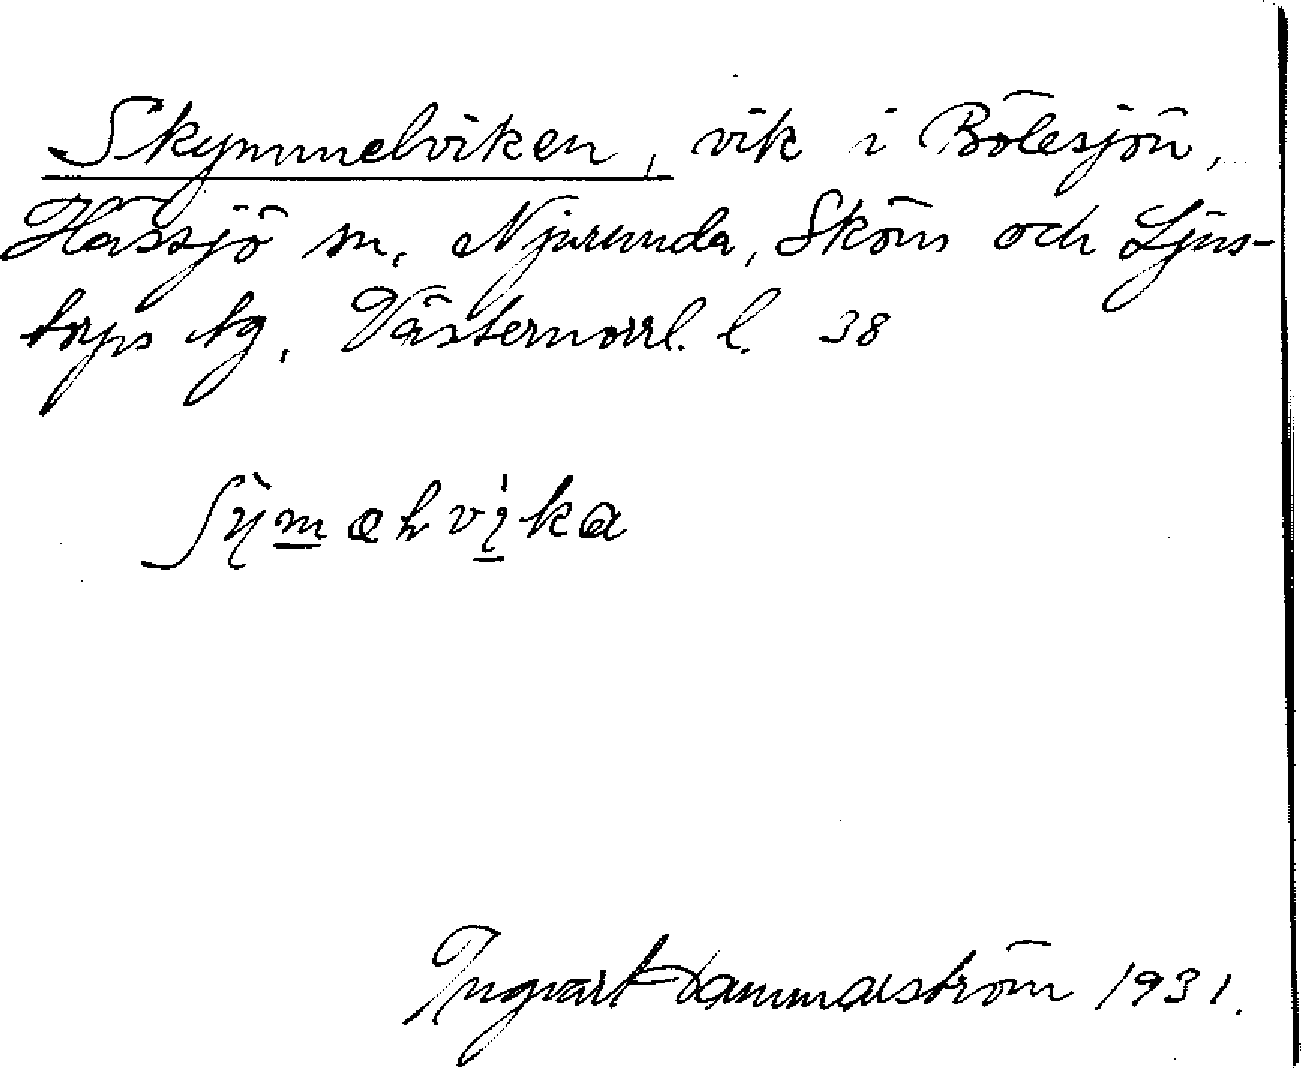 Skymmelviken, vik i Bölesjön,
Hässjö sn, Njurunda, Sköns och Ljus-
torps tg, Västernorrl. l. 38
Ingvart Hammarström 1931.